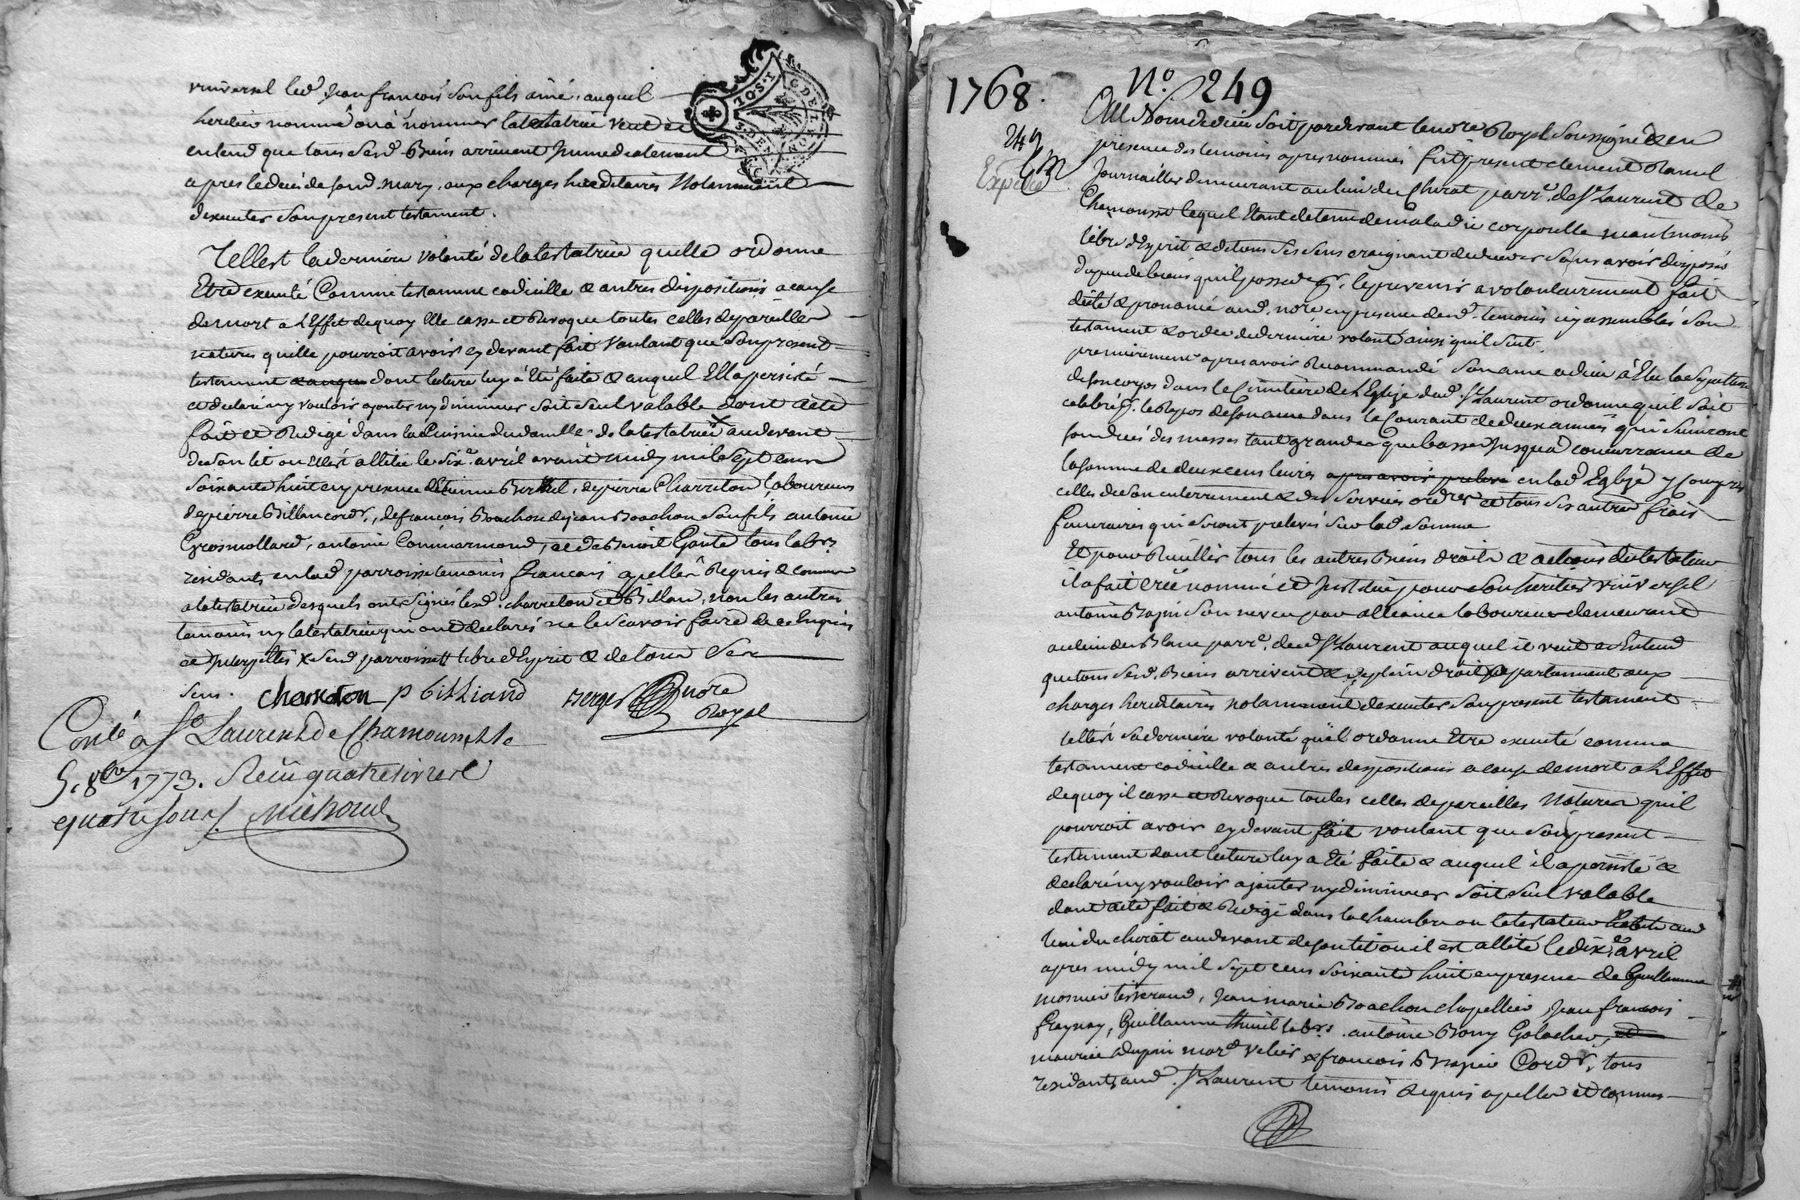 universel led. Jean francois son fils ainé, auquel
heritier nommé ou à nommer la testatrice veut et
entend que tous sesd. Biens arrivent Immediatement
apres le decé de sond. mary, aux charges hereditaires Notamment
d'executer son present testament.
Telle est la derniere volonté de la testatrice quelle ordonne
Etre executé Comme testament codicille & autres dispositions a cause
de mort a L'Effet de quoy Elle casse et Revoque toutes celles de pareilles
natures quelle pourroit avoir cy devant fait Voulant que son present
testament dont lecture luy à Eté faite & auquel Ell'a persisté
et declaré ny vouloir ajouter ny diminuer soit seul valable dont acte
fait et Redigé dans la Cuisine du domille de la testatrice au devant
de son lit ou elle est allitée le six.e avril avant midy mil sept cens
soixante huit en presence d'Etienne de pierre Charreton laboureurs
de pierre Billan cord.r, de francois Bouchon de jean Bouchon son fils antoine
Grosmollard, antoine Commarmond, et de Benoit Gonte tous lab.rs
residants en lad. parroisse temoins francois apellés Requis & connus
a la testatrice desquels ont signés lesd. charreton et Billan, non les autres
temoins ny la testatrice qui ont declarés ne le scavoir faire de ce Enquis
et Interpellés & sesd. parroisse libre d'Esprit & de tous ses
sens. Charreton p billiand Berger No.re
Royal
Conlé a St Laurent de Chamousset le
5. 8bre 1773. Recu quatre livres
quatre sous Michoud
1 SOL
G DE LYON
1768. No. 249
249
Expedié
Au Nom de dieu soit pardevant le no.re Royal soussigné & en
presence des temoins apres nommés fut present clement Ramel
Journaillier demeurant au lieu du Chirat parr.e de St Laurent de
Chamousset lequel Etant detenu de maladie corporelle neantmoins
libre d'Esprit & de tous ses sens craignant de deceder sans avoir disposé
du peu de biens qu'il possede, p.r le prevenir a volontairement fait
dicté & prononcé aud. no.re en presence desd. temoins icy assemblés son
testament & ordre de derniere volonté ainsi quil suit.
premierement apres avoir Recommandé son ame a dieu à Elu la sepulture
de son corps dans le Cimitiere de L'Eglize dud. St Laurent ordonne quil soit
celebré p.r le Repos de son ame dans le Courant de deux années qui suivront
son decés des messes tant grandes que basses Jusqu'à concurrance de
la somme de deux cens livres apres avoir prelevé en lad. Eglize y compris
celles de son enterrement & des services ord.res et tous ses autres frais
funeraires qui seront prelevés sur lad. somme
Et pour Ruillir tous les autres Biens droits & actions du testateur
il a fait créé nommé et Institué pour son heritier universel
antoine son neveu par alliance laboureur demeurant
au lieu du Blanc parr.e dud. St Laurent auquel il veut & Entend
que tous sesd. Biens arrivent & de plein droit appartiennent aux
charges hereditaires notamment d'executer son present testament
telle est sa derniere volonté qu'il ordonne Etre executé comme
testament codicille & autres dispositions a cause de mort a L'Effet
de quoy il casse et Revoque toutes celles de pareilles Natures quil
pourroit avoir cy devant fait voulant que son present
testament dont lecture luy a Eté faite & auquel il a persisté &
declaré ny vouloir ajouter ny diminuer soit seul valable
dont acte fait & Redigé dans la chambre ou le testateur habite aud.
lieu du chirat au devant de son lit ou il est allité le dix.e avril
apres midy mil sept cens soixante huit en presence de Guillaume
mosnier tisserand, Jean marie Bouchon chapellier Jean francois
Guillaume lab.rs antoine Bony Galocher,
maurice dupin mar.d & francois Cord.r, tous
residants aud. St Laurent temoins Requis apellés et connus